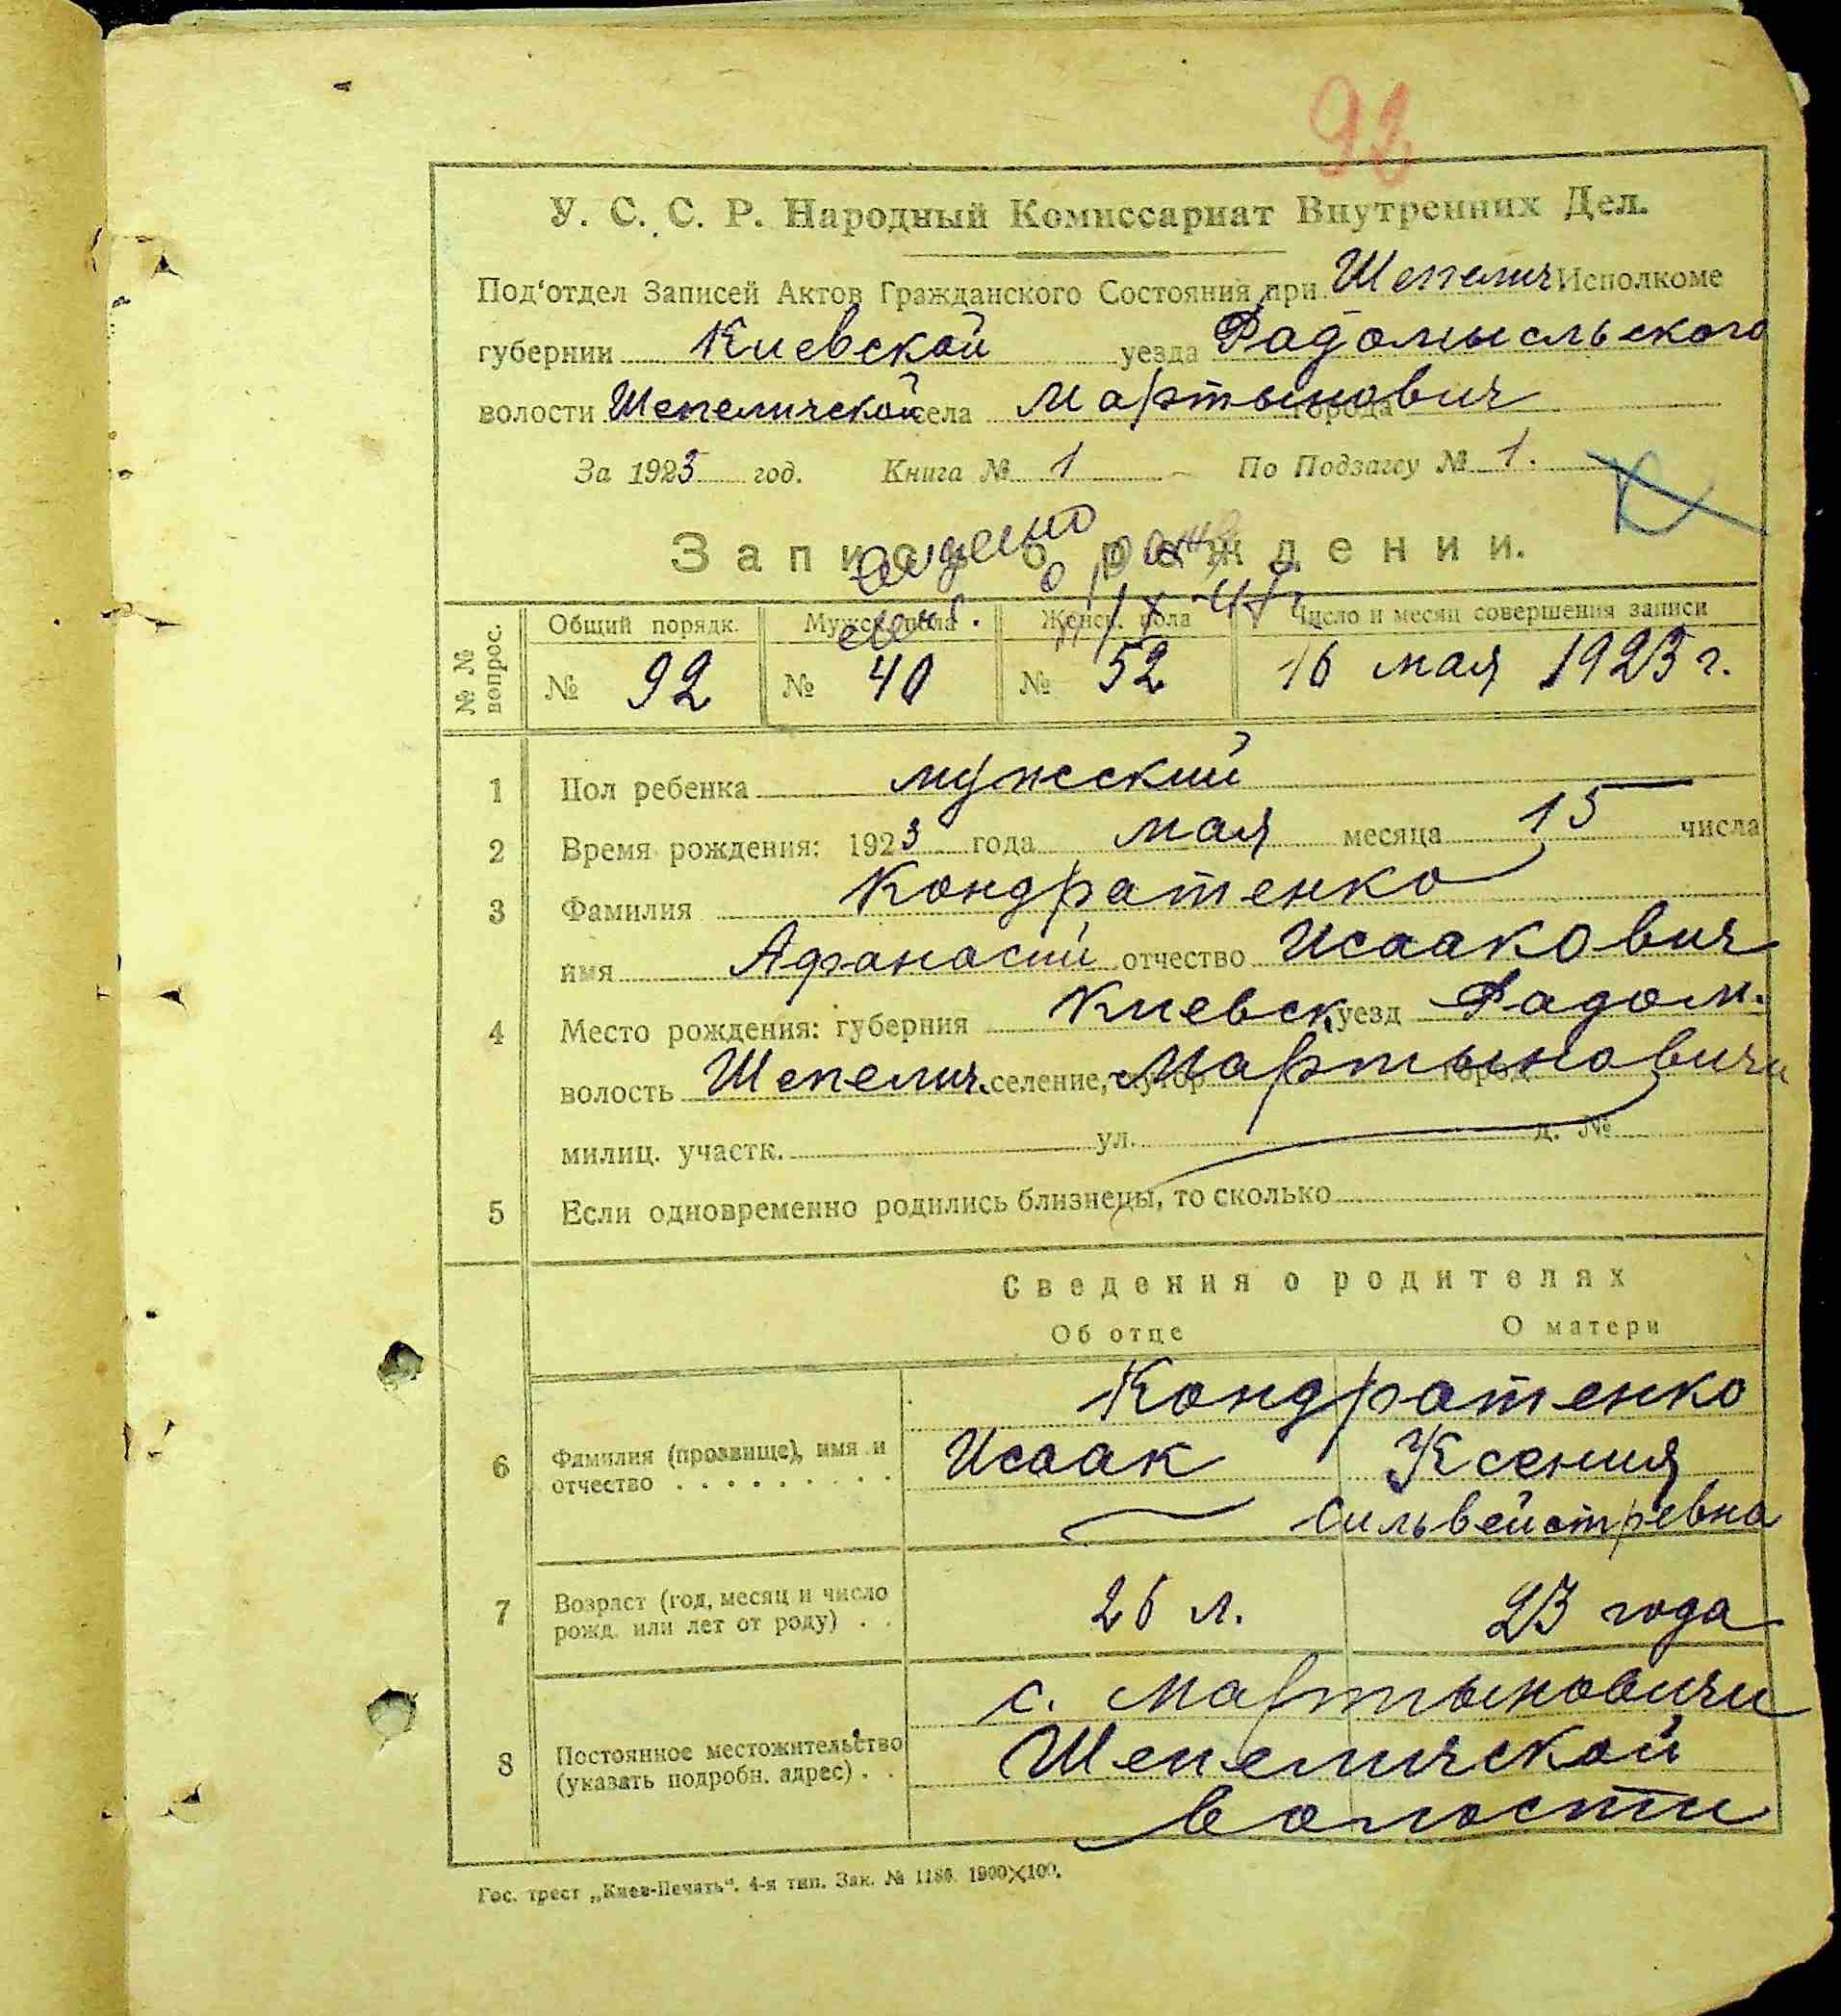 92
У. С. С. Р. Народный Комиссариат Внутренних Дел.
Под'отдел Записей Актов Гражданского Состояния при Шепелич Исполкоме
губернии Киевской уезда Радомысльского
волости Шепеличской села Мартынович города
За 1923 год. Книга № 1 По Подзагсу № 1.
Запись о рождении.
№№ вопрос.
Общий порядк. Мужск. пола Женск. пола Число и месяц совершения записи
№ 92 № 40 № 52 16 мая 1923 г.
1 Пол ребенка мужский
2 Время рождения: 1923 года мая месяца 15 числа
3 Фамилия Кондратенко
имя Афанасий отчество Исаакович
4 Место рождения: губерния Киевск уезд Радом.
волость Шепелич. селение, хутор Мартыновичи город
милиц. участк. ул. д. №
5 Если одновременно родились близнецы, то сколько
Сведения о родителях
Об отце О матери
Кондратенко
6 Фамилия (прозвище), имя и отчество Исаак Ксения
Сильвейстревна
7 Возраст (год, месяц и число рожд. или лет от роду) 26 л. 23 года
с. Мартыновичи
8 Постоянное местожительство (указать подробн. адрес) Шепеличской
волости
Гос. трест „Киев-Печать". 4-я тип. Зак. № 1186. 1900×100.